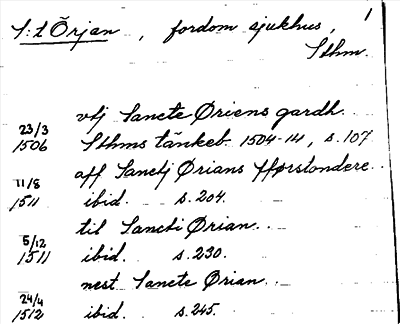 1
S:t Örjan, fordom sjukhus,
Sthm.
vtj Sancte Øriens gardh.
23/3 1506 Sthms tänkeb. 1504-14, s. 107
aff Sanctj Ørians fførstondere..
11/8 1511 ibid. s. 204.
til Sancti Ørian..
5/12 1511 ibid. s. 230.
nest Sancte Ørian..
24/4 1512 ibid. s. 245.